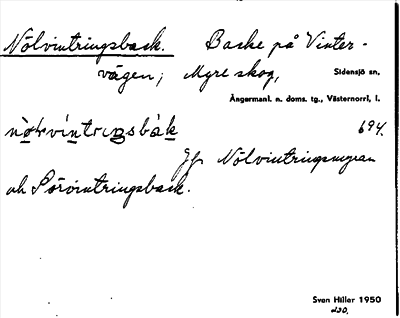 Nölvintringsback. Backe på Vinter-
vägen; Myre skog, Sidensjö sn.
Ångermanl. n. doms. tg., Västernorrl. l.
694.
Jfr Nölvintringsmyran
och Sörvintringsback.
Sven Hiller 1950